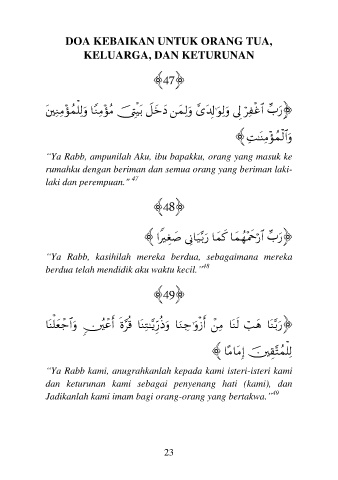 DOA KEBAIKAN UNTUK ORANG TUA,
KELUARGA, DAN KETURUNAN
﴾47﴿
﴿رَّبِّ ٱغْفِرْ لِى وَلِوَٰلِدَىَّ وَلِمَن دَخَلَ بَيْتِىَ مُؤْمِنًا وَلِلْمُؤْمِنِينَ
وَٱلْمُؤْمِنَـٰتِ ﴾
"Ya Rabb, ampunilah Aku, ibu bapakku, orang yang masuk ke
rumahku dengan beriman dan semua orang yang beriman laki-
laki dan perempuan." 47
﴾48﴿
﴿رَّبِّ ٱرْحَمْهُمَا كَمَا رَبَّيَانِى صَغِيرًا ﴾
"Ya Rabb, kasihilah mereka berdua, sebagaimana mereka
berdua telah mendidik aku waktu kecil."48
﴾49﴿
﴿رَبَّنَا هَبْ لَنَا مِنْ أَزْوَٰجِنَا وَذُرِّيَّـٰتِنَا قُرَّةَ أَعْيُنٍ وَٱجْعَلْنَا
لِلْمُتَّقِينَ إِمَامًا ﴾
"Ya Rabb kami, anugrahkanlah kepada kami isteri-isteri kami
dan keturunan kami sebagai penyenang hati (kami), dan
Jadikanlah kami imam bagi orang-orang yang bertakwa."49
23